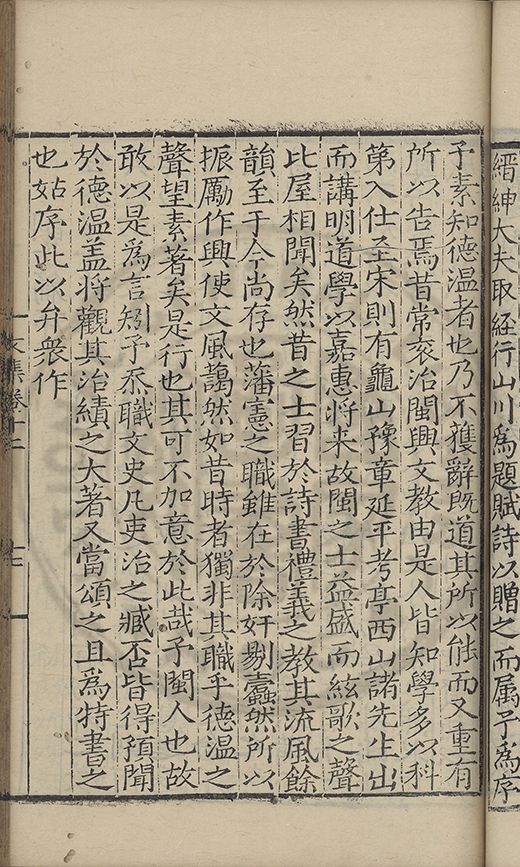 縉紳大夫取経行山川為題賦詩以贈之而属予為序
予素知德温者也乃不獲辭既道其所以能而又重有
所以告焉昔常衮治閩興文教由是人皆知學多以科
第入仕至宋則有龜山豫章延平考亭西山諸先生出
而講明道學以嘉惠将来故閩之士益盛而絃歌之聲
比屋相聞矣然昔之士習於詩書禮義之教其流風餘
韻至于今尚存也藩憲之職雖在於除奸剔蠹然所以
振厲作興使文風藹然如昔時者獨非其職乎德温之
聲望素著矣是行也其可不加意於此哉予閩人也故
敢以是為言矧予忝職文史凡吏治之臧否皆得預聞
於德温盖将觀其治績之大著又當頌之且為特書之
也姑序此以弁衆作
文集卷十二
十七